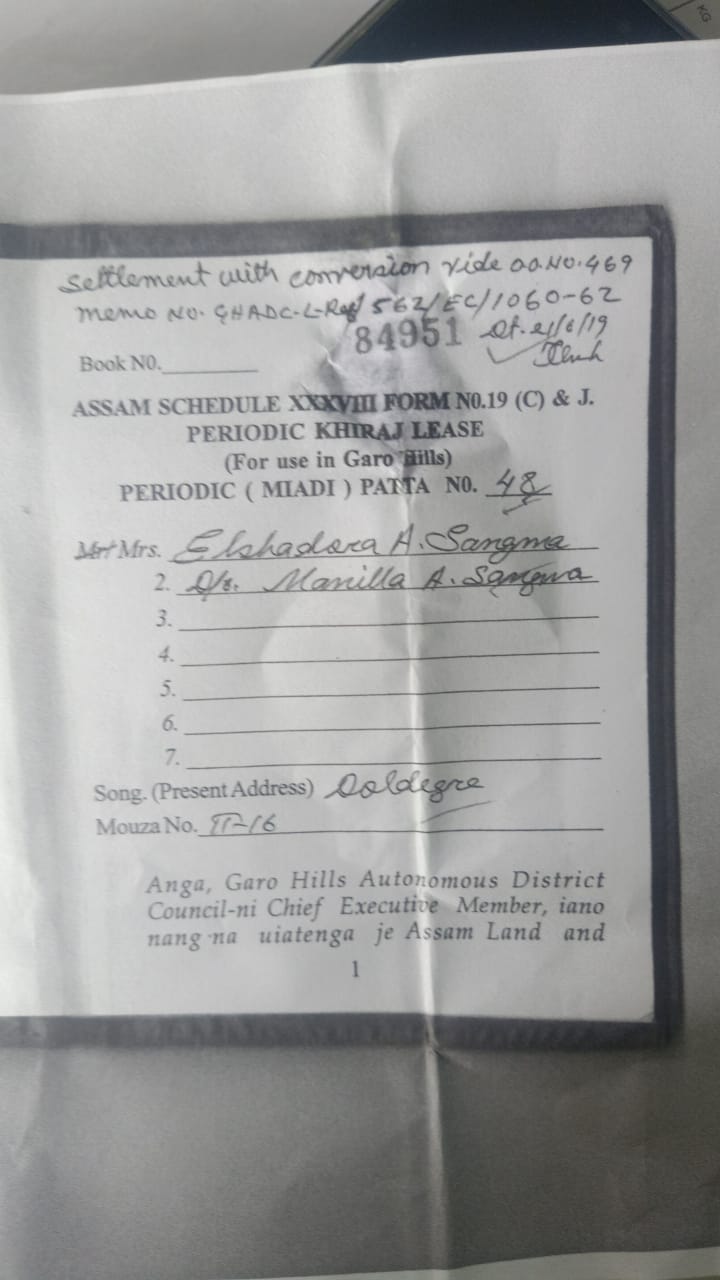 Settlement with conversion vide O.O.NO.469
Memo NO. GHADC-L-Ref/562/EC/1060-62
84951 Dt. 21/6/19
Book N0.
ASSAM SCHEDULE XXXVIII FORM N0.19 (C) & J.
PERIODIC KHIRAJ LEASE
(For use in Garo Hills)
PERIODIC ( MIADI ) PATTA N0. 48
Mr/ Mrs. Elshadora A. Sangma
2. D/o. Manilla A. Sangma
3.
4.
5.
6.
7.
Song. (Present Address) Doldegre
Mouza No. II-16
Anga, Garo Hills Autonomous District
Council-ni Chief Executive Member, iano
nang·na uiatenga je Assam Land and
1
KG